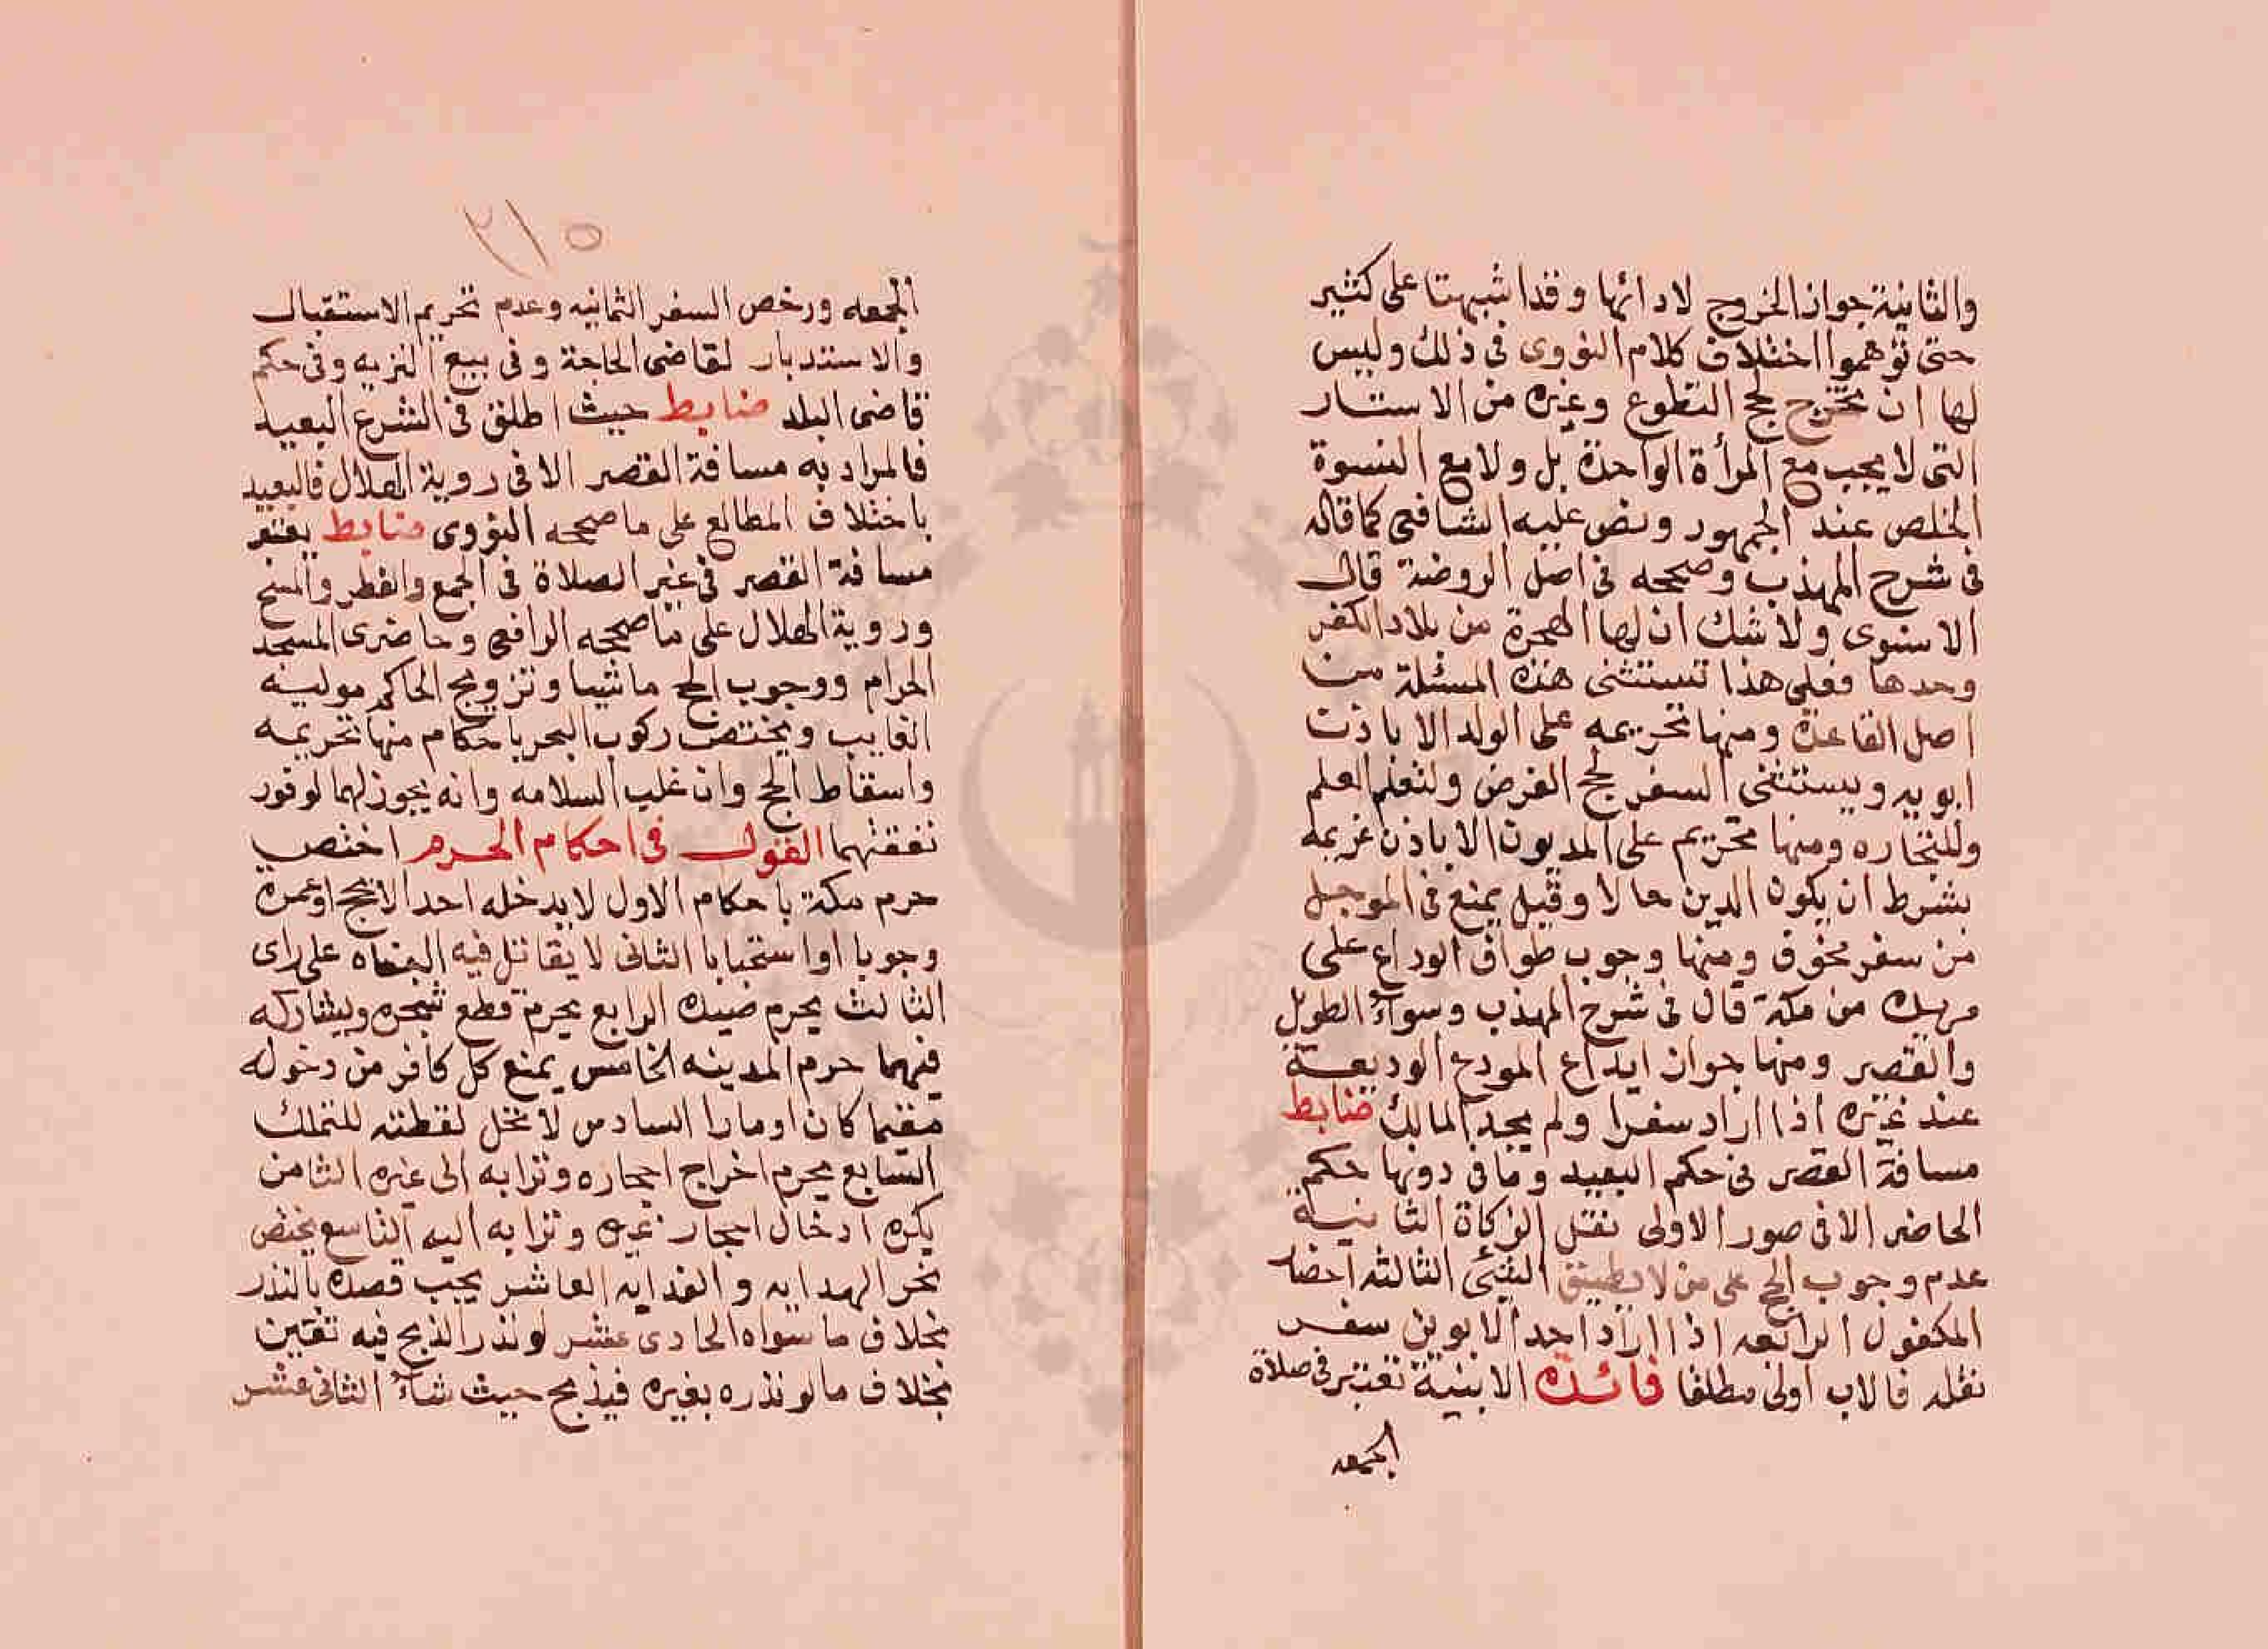 والثانية جواز الخروج لادائها وقد اشبهتا على كثير
حتى توهموا اختلاف كلام النووى فى ذلك وليس
لها ان تخرج لحج التطوع وغيره من الاستار
التى لا يجب مع المرأة الواحدة بل ولا مع النسوة
الخلص عند الجمهور ونص عليه الشافعى كما قاله
فى شرح المهذب وصححه فى اصل الروضة قال
الاسنوى ولا شك ان لها الهجرة من بلاد الكفر
وحدها فعلى هذا تستثنى هذه المسئلة من
اصل القاعدة ومنها تحريمه على الولد الا باذن
ابويه ويستثنى السفر لحج الفرض ولتعلم العلم
وللتجاره ومنها تحريم على المديون الا باذن غريمه
بشرط ان يكون الدين حالا وقيل يمنع فى الموجل
من سفر مخوف ومنها وجوب طواف الوداع على
مريده من مكة قال فى شرح المهذب وسواء الطويل
والقصر ومنها جواز ايداع المودع الوديعة
عند غيره اذا اراد سفرا ولم يجد المالك ضابط
مسافة القصر فى حكم البعيد وما فى دونها حكم
الحاضر الا فى صور الاولى نقل الزكاة الثانية
عدم وجوب الحج على من لا يطيق المشى الثالثه احضار
المكفول الرابعه اذا اراد احد الابوين سفر
نقله فالاب اولى مطلقا فائدة الابنية تعتبر فى صلاة
الجمعه
٢١٥
الجمعه ورخص السفر الثمانيه وعدم تحريم الاستقبال
والاستدبار لقاضى الحاجة وفى بيع النزيه وفى حكم
قاضى البلد ضابط حيث اطلق فى الشرع البعيد
فالمراد به مسافة القصر الا فى روية الهلال فالبعيد
باختلاف المطالع على ما صححه النووى ضابط يعتبر
مسافة القصر فى غير الصلاة فى الجمع والفطر والمسح
وروية الهلال على ما صححه الرافعى وحاضرى المسجد
الحرام ووجوب الحج ماشيا وتزويج الحاكم موليته
الغايب ويختص ركوب البحر باحكام منها تحريمه
واسقاط الحج وان غلب السلامه وانه يجوز لهما لوفور
نفقتهما القول فى احكام الحرم اختص
حرم مكة باحكام الاول لا يدخله احد الا بحج او عمرة
وجوبا او استحبابا الثانى لا يقاتل فيه البغاه على راى
الثالث يحرم صيده الرابع يحرم قطع شجره ويشاركه
فيهما حرم المدينه الخامس يمنع كل كافر من دخوله
مقيما كان او مارا السادس لا تحل لقطته للتملك
السابع يحرم اخراج احجاره وترابه الى غيره الثامن
يكره ادخال احجار غيره وترابه اليه التاسع يختص
نحر الهدايه والفدايه العاشر يجب قصده بالنذر
بخلاف ما سواه الحادى عشر لو نذر الذبح فيه تعين
بخلاف ما لو نذره بغيره فيذبح حيث شاء الثانى عشر